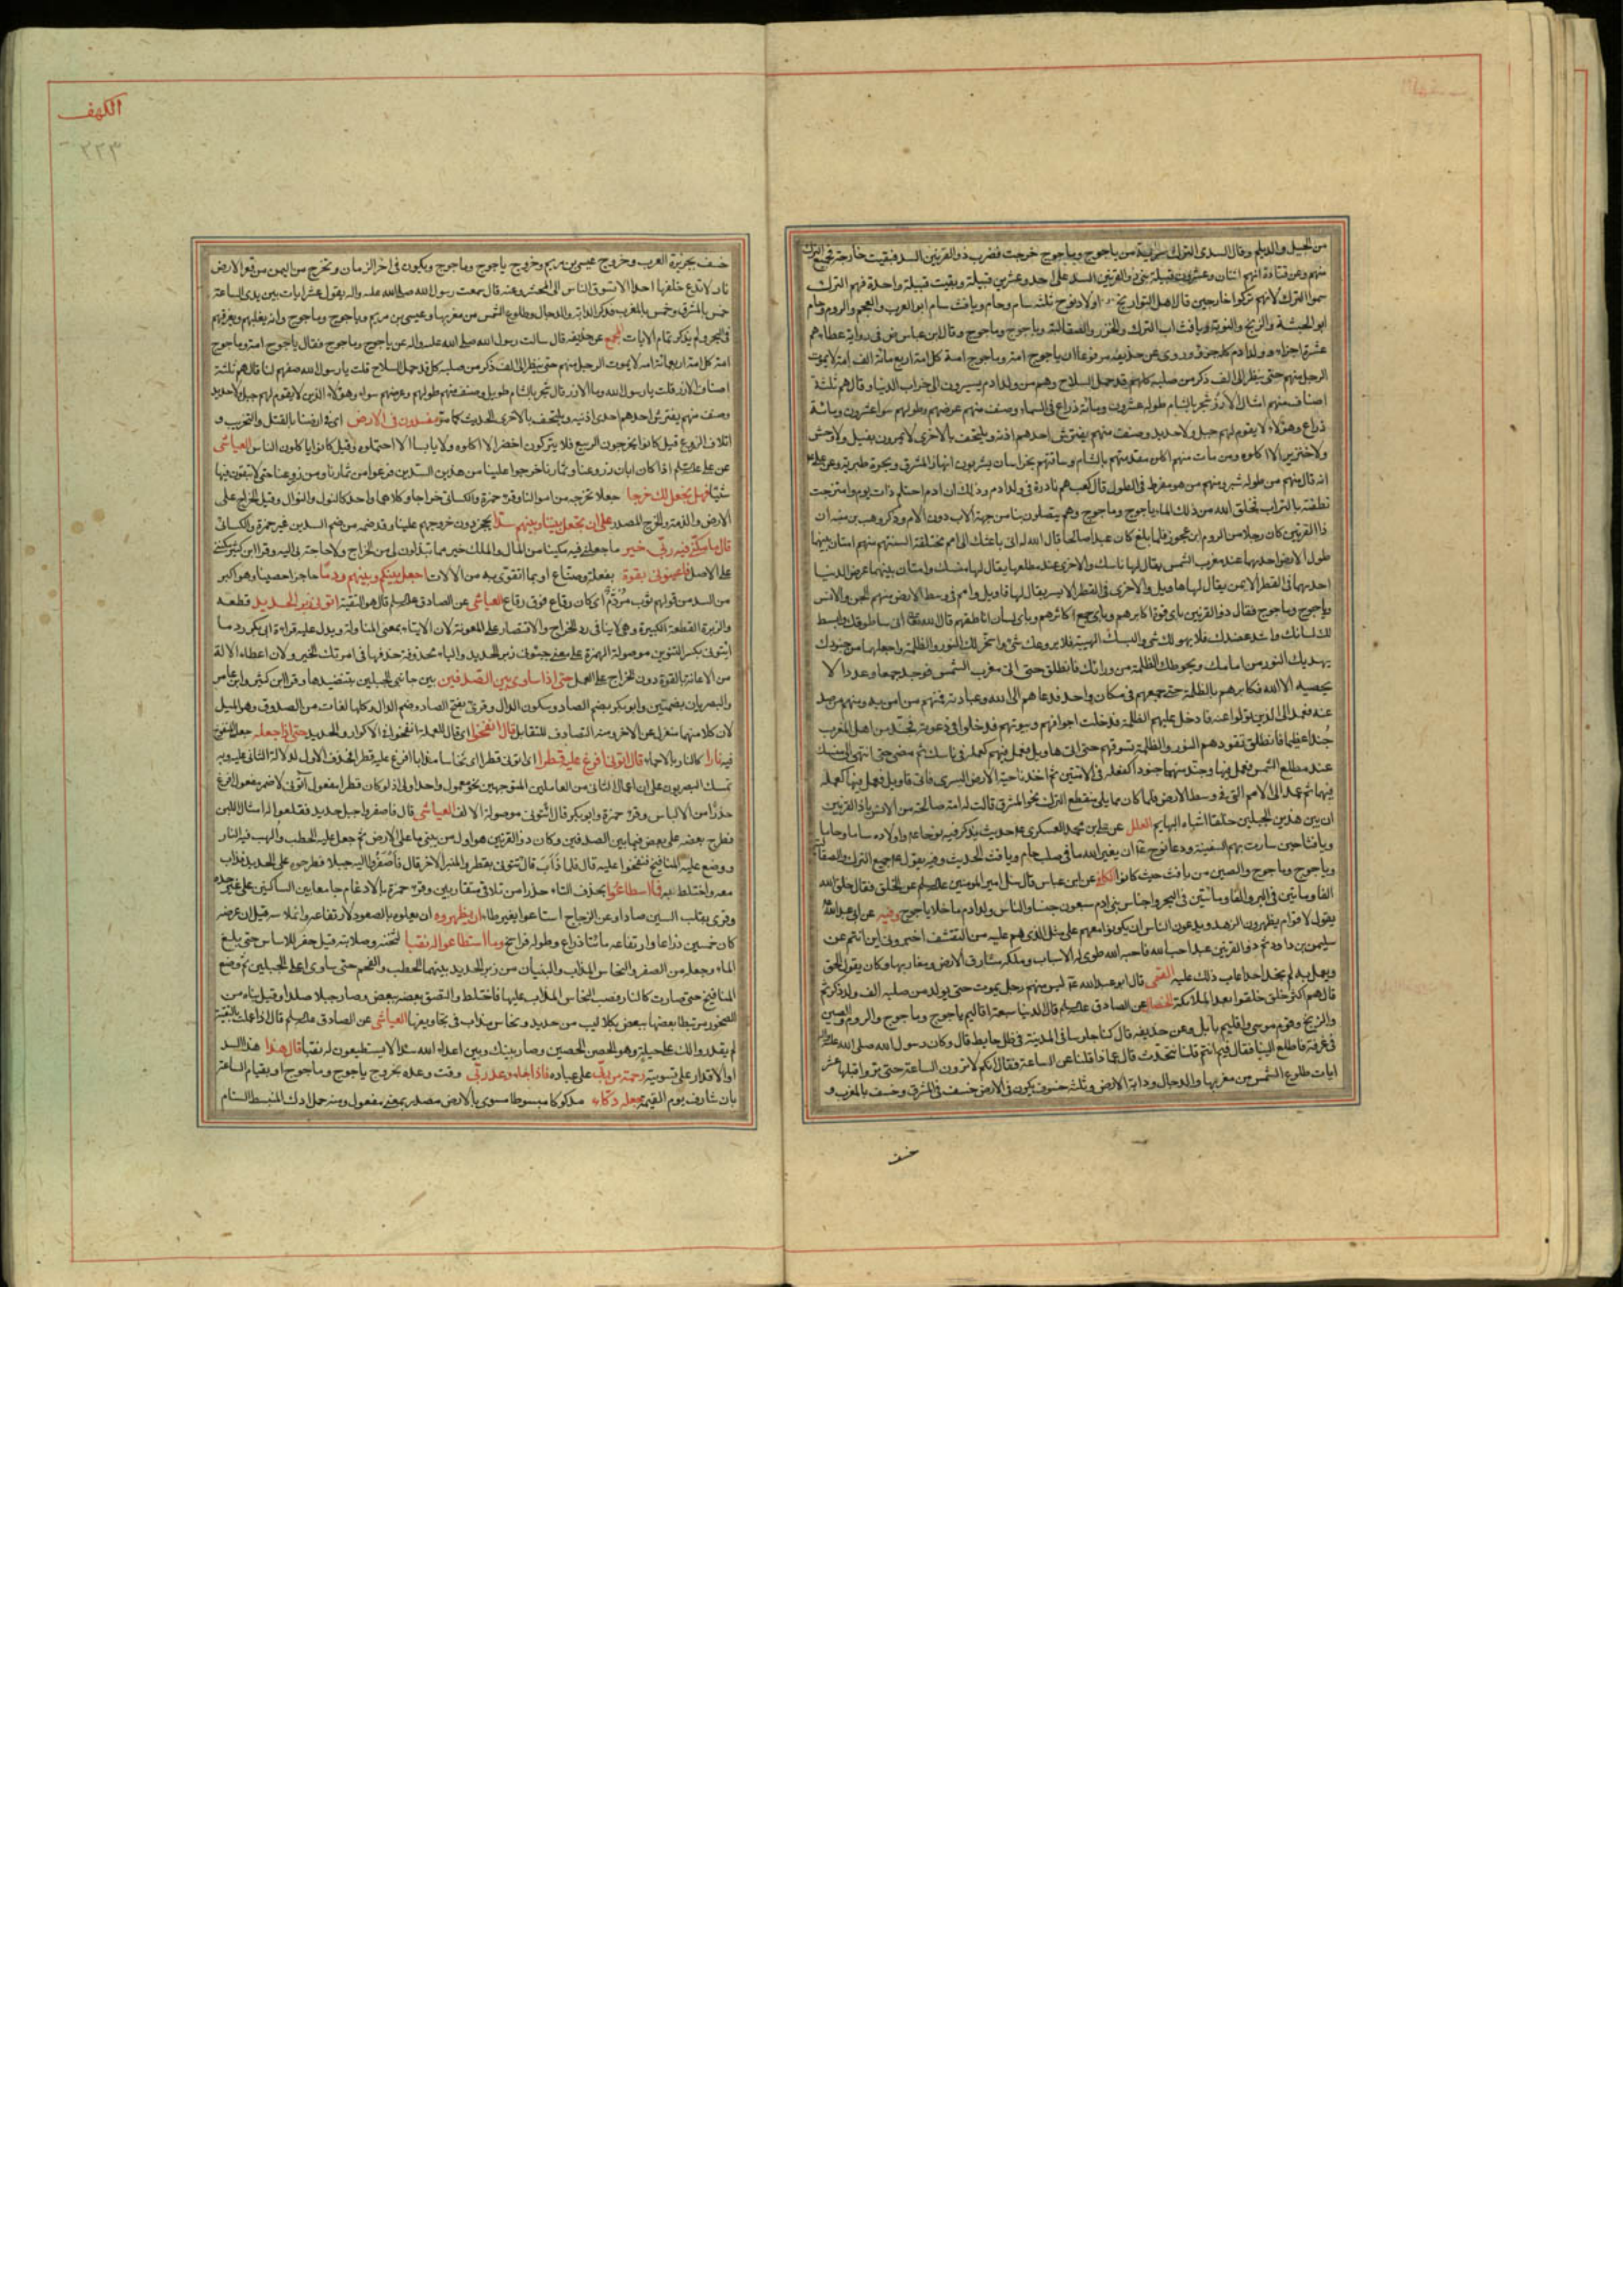 من الجيل والديلم وقال السدى الترك سرية من ياجوج وماجوج خرجت فضرب ذو القرنين السد فبقيت خارجة فجميع الترك
منهم وعن قتادة انهم اثنان وعشرون قبيلة بنى ذو القرنين السد على احد وعشرين قبيلة وبقيت قبيلة واحدة فهم الترك
سموا الترك لانهم تركوا خارجين قال اهل التواريخ اولاد نوح ثلثة سام وحام ويافث سام ابو العرب والعجم والروم وحام
ابو الحبشة والزنج والنوبة ويافث اب الترك والخزر والصقالبة وياجوج وماجوج وقال ابن عباس فى رواية عطاء هم
عشرة اجزاء وولد ادم كلهم جزؤ وروى عن حذيفة مرفوعا ان ياجوج امة وماجوج امة كل امة اربع مائة الف امة لا يموت
الرجل منهم حتى ينظر الى الف ذكر من صلبه كلهم قد حمل السلاح وهم من ولد ادم يسيرون الى خراب الدنيا وقال هم ثلثة
اصناف منهم امثال الارز شجر بالشام طوله عشرون ومائة ذراع فى السماء وصنف منهم عرضهم وطولهم سواء عشرون ومائة
ذراع وهؤلاء لا يقوم لهم جبل ولا حديد وصنف منهم يفترش احدهم اذنه ويلتحف بالاخرى لا يمرون بفيل ولا وحش
ولا خنزير الا اكلوه ومن مات منهم اكلوه مقدمتهم بالشام وساقتهم بخراسان يشربون انهار المشرق وبحيرة طبرية وعن على
انه قال منهم من طوله شبر ومنهم من هو مفرط فى الطول قال كعب هم نادرة فى ولد ادم وذلك ان ادم احتلم ذات يوم وامتزجت
نطفته بالتراب فخلق الله من ذلك الماء ياجوج وماجوج وهم يتصلون بنا من جهة الاب دون الام وذكر وهب بن منبه ان
ذا القرنين كان رجلا من الروم ابن عجوز فلما بلغ كان عبدا صالحا قال الله له انى باعثك الى امم مختلفة السنتهم منهم امتان بينهما
طول الارض احديهما عند مغرب الشمس يقال لها ناسك والاخرى عند مطلعها يقال لها منسك وامتان بينهما عرض الدنيا
احديهما فى القطر الايمن يقال لها هاويل والاخرى فى القطر الايسر يقال لها قاويل وامم فى وسط الارض منهم الجن والانس
وياجوج وماجوج فقال ذو القرنين باى قوة اكابرهم وباى جمع اكاثرهم وباى لسان اناطقهم قال الله انى ساطوقك وابسط
لك لسانك واشد عضدك فلا يهولنك شئ والبسك الهيبة فلا يروعك شئ واسخر لك النور والظلمة واجعلهما من جنودك
يهديك النور من امامك ويحوطك الظلمة من ورائك فانطلق حتى اتى مغرب الشمس فوجد جمعا وعددا لا
يحصيه الا الله فكابرهم بالظلمة حتى جمعهم فى مكان واحد فدعاهم الى الله وعبادته فمنهم من امن به ومنهم من صد
عنه فعمد الى الذين تولوا عنه فادخل عليهم الظلمة فدخلت اجوافهم وبيوتهم فدخلوا فى دعوته فجند من اهل المغرب
جندا عظيما فانطلق تقودهم النور والظلمة تسوقهم حتى اتت هاويل فعمل فيهم كعمله فى ناسك ثم مضى حتى انتهى الى منسك
عند مطلع الشمس فعمل فيها وجند منهما جنودا كفعله فى الامتين ثم اخذ ناحية الارض اليسرى فاتى قاويل فعمل فيها كعمله
فيها ثم عمد الى الامم التى فى وسط الارض فلما كان مما يلى منقطع الترك نحو المشرق قالت له امة صالحة من الانس يا ذا القرنين
ان بين هذين الجبلين خلقا اشباه البهايم العلل عن على بن محمد العسكرى حديث يذكر فيه نوحا واولاده ساما وحاما
ويافثا حين سارت بهم السفينة ودعا نوح ان يغير الله ما فى صلب حام ويافث الحديث وفيه يقول جميع الترك والصقالبة
وياجوج وماجوج والصين من يافث حيث كانوا الكافى عن ابن عباس قال سئل امير المومنين عن الخلق فقال خلق الله
الفا ومأتين فى البر والفا ومأتين فى البحر واجناس بنى ادم سبعون جنسا والناس ولد ادم ما خلا ياجوج وفيه عن ابى عبد الله
يقول لاقوام يظهرون الزهد ويدعون الناس ان يكونوا معهم على مثل الذى هم عليه من التقشف اخبرونى اين انتم عن
سليمن بن داود ثم ذو القرنين عبد احب الله فاحبه الله طوى له الاسباب وملكه مشارق الارض ومغاربها وكان يقول الحق
ويعمل به ثم لم نجد احدا عاب ذلك عليه القمى قال ابو عبد الله ليس منهم رجل يموت حتى يولد من صلبه الف ولد ذكر ثم
قال هم اكثر خلق خلقوا بعد الملائكة الخصال عن الصادق قال الدنيا سبعة اقاليم ياجوج وماجوج والروم والصين
والزنج وقوم موسى واقليم بابل وعن حذيفة قال كنا جلوسا فى المدينة فى ظل حايط قال وكان رسول الله صلى الله عليه واله
فى غرفة فاطلع الينا فقال فيم انتم قلنا نتحدث قال عما ذا قلنا عن الساعة فقال انكم لا ترون الساعة حتى تروا قبلها عشر
ايات طلوع الشمس من مغربها والدجال ودابة الارض وثلثة خسوف يكون فى الارض خسف فى المشرق وخسف بالمغرب و
خسف
الكهف
٢٢٣
خسف بجزيرة العرب وخروج عيسى بن مريم وخروج ياجوج وماجوج ويكون فى اخر الزمان وتخرج من اليمن من قعر الارض
نار لا تدع خلفها احدا الا تسوق الناس الى المحشر وعنه قال سمعت رسول الله صلى الله عليه واله يقول عشر ايات بين يدى الساعة
خمس بالمشرق وخمس بالمغرب فذكر الدابة والدجال وطلوع الشمس من مغربها وعيسى بن مريم وياجوج وماجوج وانه يغلبهم ويغرقهم
فى البحر ولم يذكر تمام الايات المجمع عن حذيفة قال سالت رسول الله صلى الله عليه واله عن ياجوج وماجوج فقال ياجوج امة وماجوج
امة كل امة اربعمائة امة لا يموت الرجل منهم حتى ينظر الى الف ذكر من صلبه كل قد حمل السلاح قلت يا رسول الله صفهم لنا قال هم ثلثة
اصناف الارز قلت يا رسول الله وما الارز قال شجر بالشام طويل وصنف منهم طولهم وعرضهم سواء وهؤلاء الذين لا يقوم لهم جبل ولا حديد
وصنف منهم يفترش احدهم احدى اذنيه ويلتحف بالاخرى الحديث كما مر مفسدون فى الارض اى فى ارضنا بالقتل والتخريب و
اتلاف الزرع قيل كانوا يخرجون الربيع فلا يتركون اخضر الا اكلوه ولا يابسا الا احتملوه وقيل كانوا ياكلون الناس العياشى
عن على اذا كان ابان زروعنا وثمارنا خرجوا علينا من هذين السدين فرعوا من ثمارنا ومن زروعنا حتى لا يبقون منها
شيئا فهل نجعل لك خرجا جعلا نخرجه من اموالنا وقرء حمزة والكسائى خراجا وكلاهما واحد كالنول والنوال وقيل الخراج على
الارض والذمة والخرج المصدر على ان تجعل بيننا وبينهم سدا يحجز دون خروجهم علينا وقد ضمه من ضم السدين غير حمزة والكسائى
قال ما مكنى فيه ربى خير ما جعلنى فيه مكينا من المال والملك خير مما تبذلون لى من الخراج ولا حاجة بى اليه وقرا ابن كثير مكننى
على الاصل فاعينونى بقوة بفعلة وصناع او بما اتقوى به من الالات اجعل بينكم وبينهم ردما حاجزا حصينا وهو اكبر
من السد من قولهم ثوب مردم اى كان رقاع فوق رقاع العياشى عن الصادق قال هو التقية اتونى زبر الحديد قطعه
والزبرة القطعة الكبيرة وهى لا ينافى رد الخراج والاقتصار على المعونة لان الايتاء بمعنى المناولة ويدل عليه قراءة ابى بكر ردما
ائتونى بكسر التنوين موصولة الهمزة على معنى جيئونى زبر الحديد والباء محذوفة حذفها فى امرتك الخير ولان اعطاء الالة
من الاعانة بالقوة دون الخراج على العمل حتى اذا ساوى بين الصدفين بين جانبى الجبلين بتنضيدها وقرا ابن كثير وابن عامر
والبصريان بضمتين وابو بكر بضم الصاد وسكون الدال وقرئ بفتح الصاد وضم الدال وكلها لغات من الصدف وهو الميل
لان كلا منهما منعزل عن الاخر ومنه التصادف للتقابل قال انفخوا اى قال للعملة انفخوا فى الاكوار والحديد حتى اذا جعله جعل المنفوخ
فيه نارا كالنار بالاحماء قال اتونى افرغ عليه قطرا اى اتونى قطرا اى نحاسا مذابا افرغ عليه قطرا فحذف الاول لدلالة الثانى عليه وبه
تمسك البصريون على ان اعمال الثانى من العاملين المتوجهين نحو معمول واحد اولى اذ لو كان قطرا مفعول آتونى لاضمر مفعول افرغ
حذرا من الالباس وقرء حمزة وابو بكر قال ائتونى موصولة الالف العياشى قال فاحتفروا جبل حديد فقلعوا له امثال اللبن
فطرح بعضه على بعض فيما بين الصدفين وكان ذو القرنين هو اول من بنى ردما على الارض ثم جعل عليه الحطب والهب فيه النار
ووضع عليه المنافيخ فنفخوا عليه قال فلما ذاب قال ائتونى بقطر قال فاحتفروا له جبلا فطرحوه على الحديد فذاب
معه واختلط به فما اسطاعوا بحذف التاء حذرا من تلاقى متقاربين وقرء حمزة بالادغام جامعا بين الساكنين على غير حده
وقرئ بقلب السين صادا وعن الزجاج استاعوا بغير طاء ان يظهروه ان يعلوه بالصعود لارتفاعه وانملاسه قيل ان عرضه
كان خمسين ذراعا وارتفاعه مائتا ذراع وطوله فراسخ وما استطاعوا له نقبا لثخنه وصلابته قيل حفر للاساس حتى بلغ
الماء وجعله من الصفر والنحاس المذاب والبنيان من زبر الحديد بينهما الحطب والفحم حتى ساوى اعلى الجبلين ثم وضع
المنافيخ حتى صارت كالنار فصب النحاس المذاب عليها فاختلط والتصق بعضه ببعض وصار جبلا صلدا وقيل بناه من
الصخور مرتبطا بعضها ببعض بكلاليب من حديد ونحاس مذاب فى تجاويفها العياشى عن الصادق قال اذا عملت بالتقية
لم يقدروا لك على حيلة وهو الحصن الحصين وصار بينك وبين اعداء الله سدا لا يستطيعون له نقبا قال هذا هذا السد
او الاقدار على تسويته رحمة من ربى على عباده فاذا جاء وعد ربى وقت وعده بخروج ياجوج وماجوج او بقيام الساعة
بان شارف يوم القيمة جعله دكاء مدكوكا مبسوطا مسوى بالارض مصدر بمعنى مفعول ومنه جمل ادك المنبسط السنام